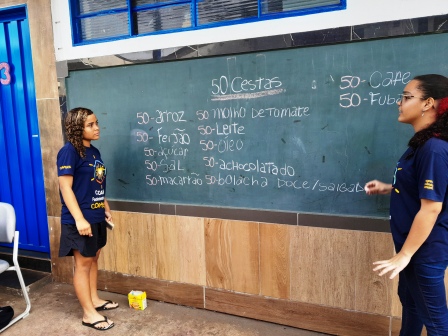 3
50 CESTAS
50-arroz
50-FEIJÃO
50-açucar
50-SAL
50-macarrão
50 MOLHO DE TOMATE
50-Leite
50-OLEO
50-achocolatado
50-bolacha DOCE/SALGAD
50-CAFE
50-Fuba